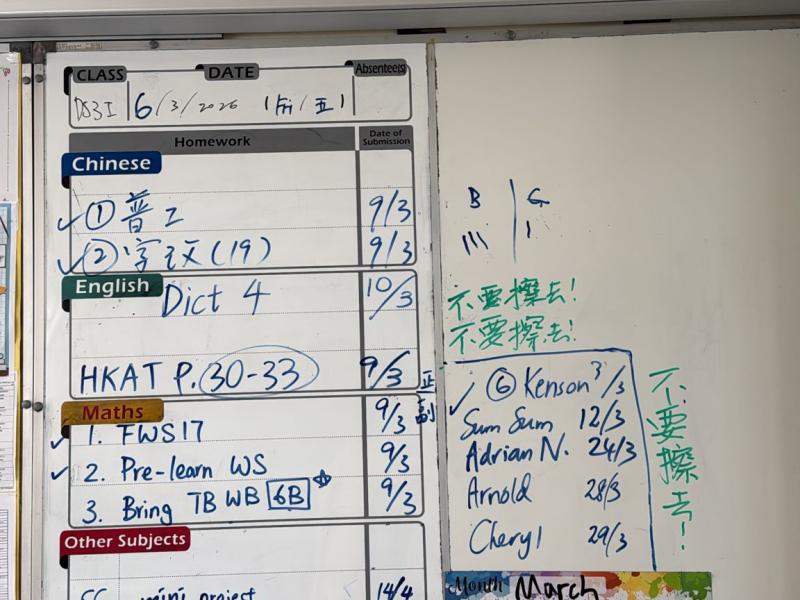 CLASS DATE Absentee(s)
DS3I 6/3/2026 (Fri/五)
Homework Date of Submission
Chinese
✓ ① 普工 9/3
✓ ② 字文(19) 9/3
English
Dict 4 10/3
HKAT P.30-33 9/3
正
副
Maths
✓ 1. FWS17 9/3
✓ 2. Pre-learn WS 9/3
3. Bring TB WB 6B 9/3
Other Subjects
mini project 14/4
B G
||| |
不要擦去!
不要擦去!
✓ ⑥ Kenson 3/3
Sum Sum 12/3
Adrian N. 24/3
Arnold 28/3
Cheryl 29/3
不要擦去!
Month March